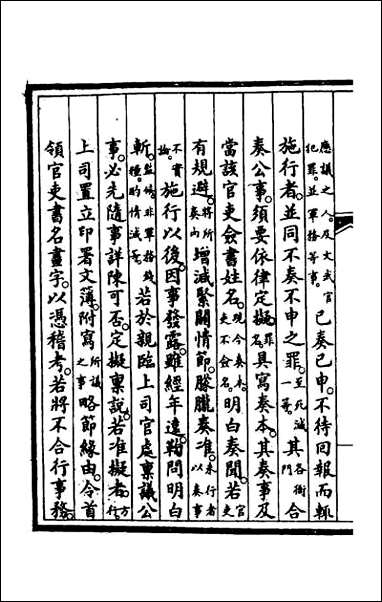 應議之人。及文武官犯罪。並軍務等事。已奏已申。不待回報而輒
施行者。並同不奏不申之罪。至死減一等。其各衙門合
奏公事。須要依律定擬罪名。具寫奏本。其奏事及
當該官吏僉書姓名。現今奏本吏不僉名。明白奏聞。若官吏
有規避。將所奏內增減緊關情節。朦朧奏准。未行者以奏事
不實論。施行以後。因事發露。雖經年遠。勒問明白
斬。監候。非軍務錢糧酌情減等。若於親臨上司官處稟議公
事。必先隨事詳陳可否。定擬稟說。若准擬者。方行
上司置立印署文簿。附寫所議之事略節緣由。令首
領官吏書名畫字。以憑稽考。若將不合行事務。